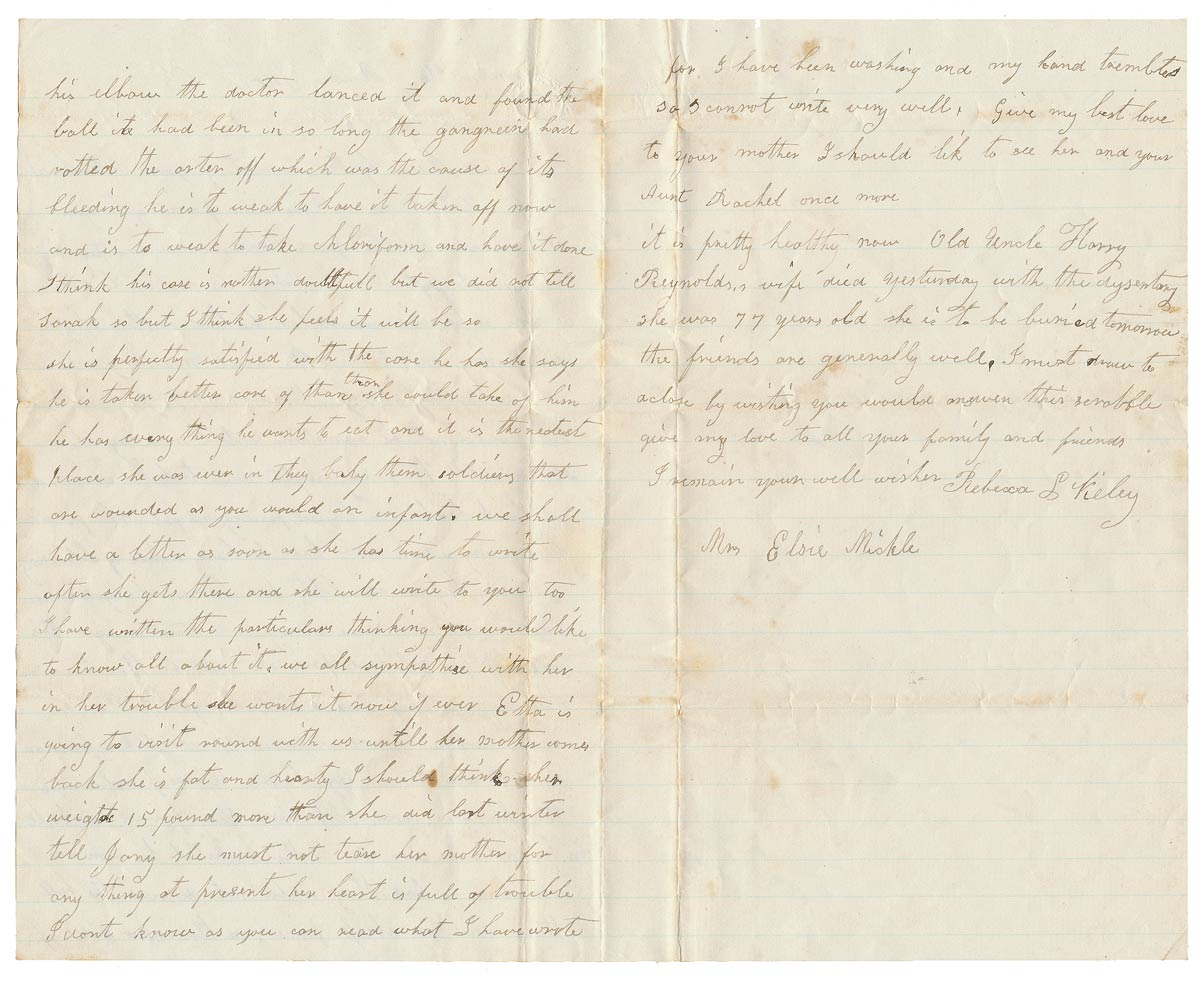 his elbow the doctor lanced it and found the
ball it had been in so long the gangreen had
rotted the arter off which was the cause of its
bleeding he is to weak to have it taken off now
and is to weak to take chloriform and have it done
I think his case is rather doubtfull but we did not tell
Sarah so but I think she feels it will be so
she is perfectly satisfied with the care he has she says
he is taken better care of than she could take of him
he has every thing he wants to eat and it is the neatest
place she was ever in they baby them soldiers that
are wounded as you would an infant. we shall
have a letter as soon as she has time to write
after she gets there and she will write to you too
I have written the particulars thinking you would like
to know all about it. we all sympathise with her
in her trouble she wants it now if ever Etta is
going to visit round with us untill her mother comes
back she is fat and hearty I should think she
weight 15 pound more than she did last winter
tell she must not tease her mother for
any thing at present her heart is full of trouble
I dont know as you can read what I have wrote
for I have been washing and my hand trembles
so I connot write very well. Give my best love
to your mother I should lik to see her and your
Aunt Rachel once more
it is pretty healthy now Old Uncle Harry
Reynolds,s wife died yesturday with the dysentary
she was 77 years old she is to be buried tomorrow
the friends are generally well. I must draw to
a close by wishing you would answer this scrabble
give my love to all your family and friends
I remain your well wisher Rebecca L
Mrs Elsie Mickle